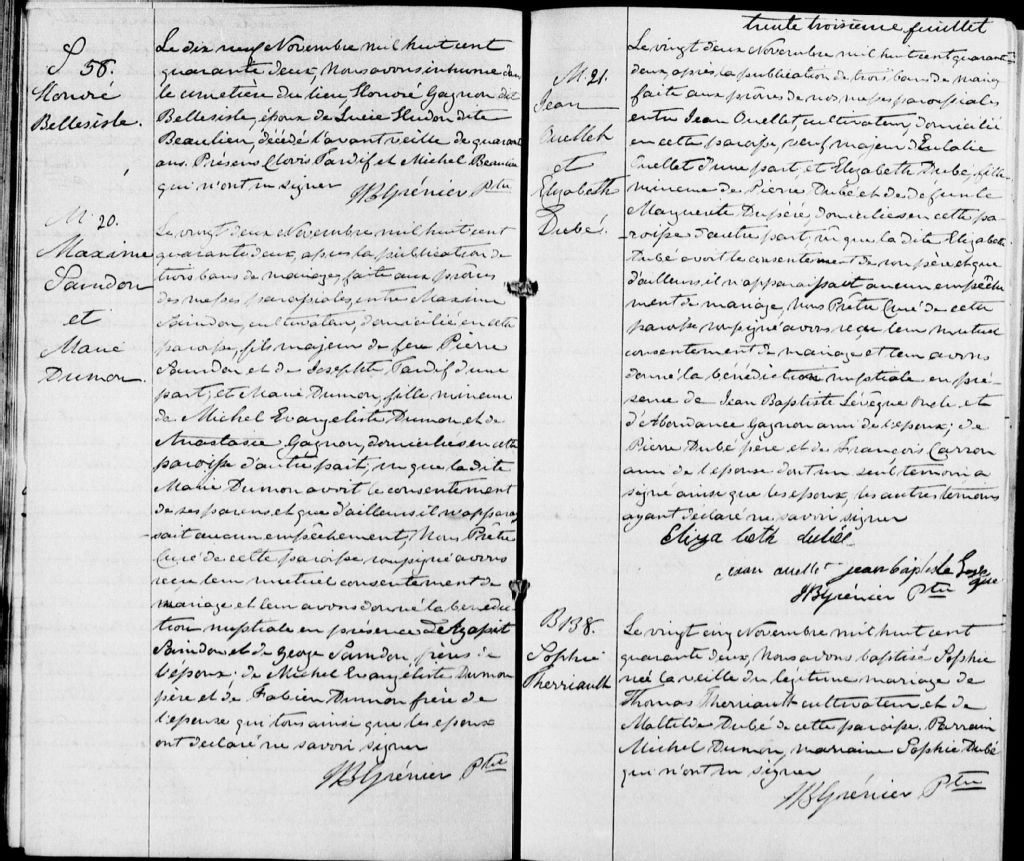 S 58.
Honoré
Bellesisle.
Le dix neuf Novembre mil huit cent
quarante deux, Nous avons inhumé dans
le cimetière du lieu, Honoré Gagnon dit
Bellesisle, époux de Lucie Hudon dite
Beaulieu, décédé l'avant veille de quarante
ans. Présens Clovis Tardif et Michel Beaulieu
qui n'ont su signer
JBGrénier Ptre
M. 20.
Maxime
Saindon
et
Marie
Dumon.
Le vingt deux Novembre mil huit cent
quarante deux, après la publication de
trois bans de mariages, faite aux prônes
des messes paroissiales, entre Maxime
Saindon, cultivateur, domicilié en cette
paroisse, fils majeur de feu Pierre
Saindon et de Josephte Tardif d'une
part; et Marie Dumon, fille mineure
de Michel Evangeliste Dumon et de
Anastasie Gagnon, domiciliés en cette
paroisse d'autre part; vu que la dite
Marie Dumon avoit le consentement
de ses parens et que d'ailleurs il n'apparai
sait aucun empêchement, Nous Prêtre
Curé de cette paroisse soussigné avons
reçu leur mutuel consentement de
mariage et leur avons donné la bénédic
tion nuptiale en présence De Agapit
Saindon et de George Saindon, frères de
l'époux; de Michel Evangéliste Dumon
père et de Fabien Dumon frère de
l'épouse qui tous ainsi que les epoux
ont déclaré ne savoir signer
JBGrénier Ptre
trente troisième feuillet
M. 21.
Jean
Ouellet
et
Elizabeth
Dubé.
Le vingt deux Novembre mil huit cent quarante
deux, après la publication de trois bans de mariage
faite aux prônes de nos messes paroissiales
entre Jean Ouellet, cultivateur, domicilié
en cette paroisse, veuf majeur d'Eulalie
Ouellet d'une part, et Elizabeth Dubé, fille
mineure de Pierre Dubé et de défunte
Marguerite Dupéré domiciliés en cette pa
roisse d'autre part, vu que la dite Elizabeth
Dubé avoit le consentement de son père et que
d'ailleurs il n'apparaissait aucun empêche
ment de mariage, Nous Prêtre Curé de cette
paroisse soussigné avons reçu leur mutuel
consentement de mariage et leur avons
donné la bénédiction nuptiale en pré-
sence de Jean Baptiste Lévêque Oncle et
d'Abondance Gagnon ami de l'époux; de
Pierre Dubé père et de François Carron
ami de l'épouse dont un seul temoin a
signé ainsi que les epoux, les autres témoins
ayant déclaré ne savoir signer
Eliza beth dubé
jean ouellet jean baptiste Leves
que
JBGrénier Ptre
B 138.
Sophie
Therriault
Le vingt cinq Novembre mil huit cent
quarante deux, Nous avons baptisé Sophie
née la veille du légitime mariage de
Thomas Therriault cultivateur et de
Mathilde Dubé de cette paroisse. Parrain
Michel Dumon, marraine Sophie Dubé
qui n'ont su signer
JBGrénier Ptre